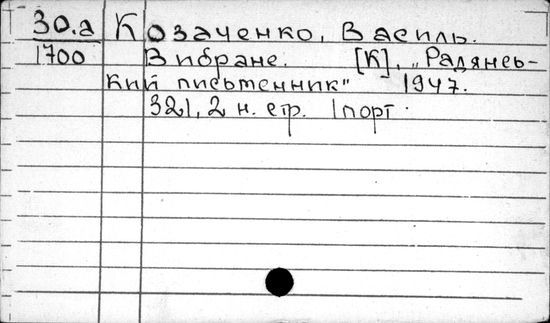 30.a Козаченко, Василь.
1700 Вибране. [К], „Радянсь-
кий письменник" 1947.
321, 2 н. стр. 1 порт.